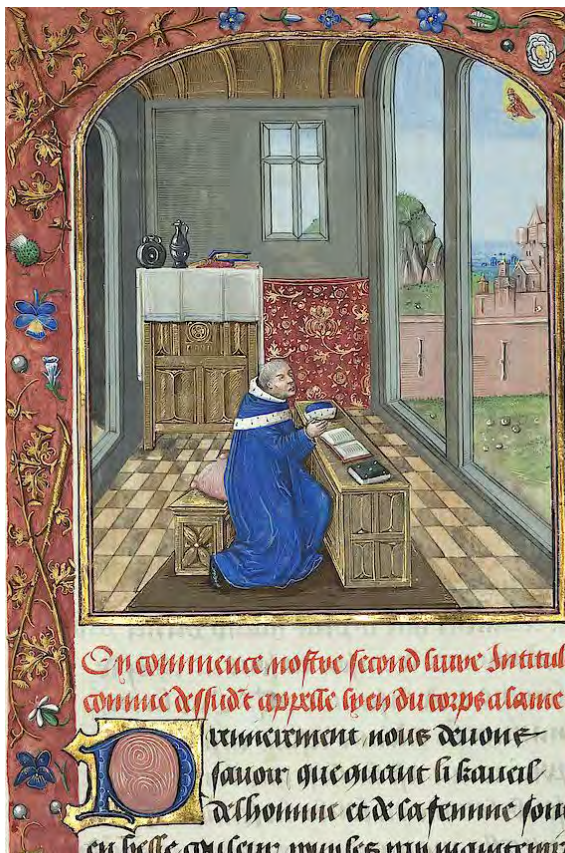 Cy commence nostre second livre Intitul
comme dessus dit appelle lyen du corps a lame
Premierement nous devons
savoir que quant li
de lhomme et de la femme sont
en belle couleur